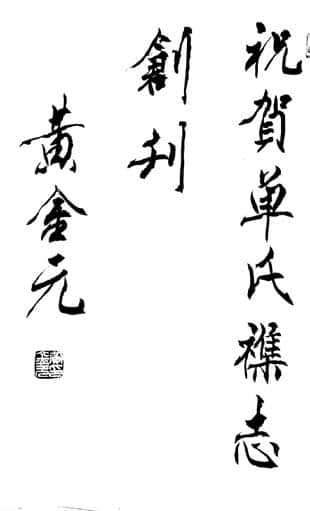 祝賀单氏襍志
創刊
黄金元